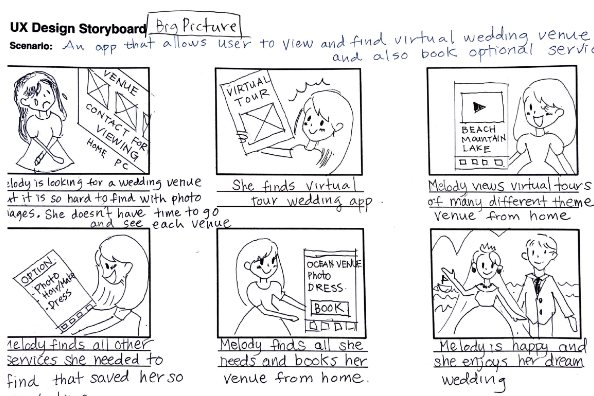 UX Design Storyboard Big Picture
Scenario: An app that allows user to view and find virtual wedding venue
and also book optional servic
VENUE
CONTACT FOR
VIEWING
HOME PC
elody is looking for a wedding venue
ut it is so hard to find with photo
ages. She doesn't have time to go
and see each venue
VIRTUAL
TOUR
She finds virtual
tour wedding app.
BEACH
MOUNTAIN
LAKE
Melody views virtual tours
of many different theme
venue from home
OPTION
· Photo
· Hair/Make
· Dress
Melody finds all other
services she needed to
find that saved her so
OCEAN VENUE
PHOTO
DRESS
BOOK
Melody finds all she
needs and books her
venue from home.
Melody is happy and
she enjoys her dream
wedding